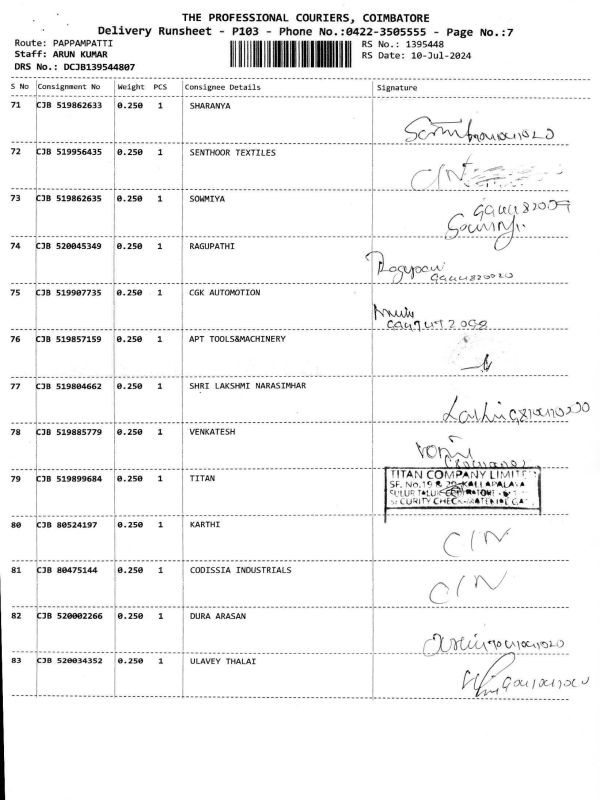 THE PROFESSIONAL COURIERS, COIMBATORE
Delivery Runsheet - P103 - Phone No.:0422-3505555 - Page No.:7
Route: PAPPAMPATTI
Staff: ARUN KUMAR
DRS No.: DCJB139544807
RS No.: 1395448
RS Date: 10-Jul-2024
S No Consignment No Weight PCS Consignee Details Signature
71 CJB 519862633 0.250 1 SHARANYA
72 CJB 519956435 0.250 1 SENTHOOR TEXTILES C/N
73 CJB 519862635 0.250 1 SOWMIYA
74 CJB 520045349 0.250 1 RAGUPATHI
75 CJB 519907735 0.250 1 CGK AUTOMOTION
76 CJB 519857159 0.250 1 APT TOOLS&MACHINERY
77 CJB 519804662 0.250 1 SHRI LAKSHMI NARASIMHAR
78 CJB 519885779 0.250 1 VENKATESH
79 CJB 519899684 0.250 1 TITAN
TITAN COMPANY LIMITED
80 CJB 80524197 0.250 1 KARTHI C/N
81 CJB 80475144 0.250 1 CODISSIA INDUSTRIALS C/N
82 CJB 520002266 0.250 1 DURA ARASAN
83 CJB 520034352 0.250 1 ULAVEY THALAI